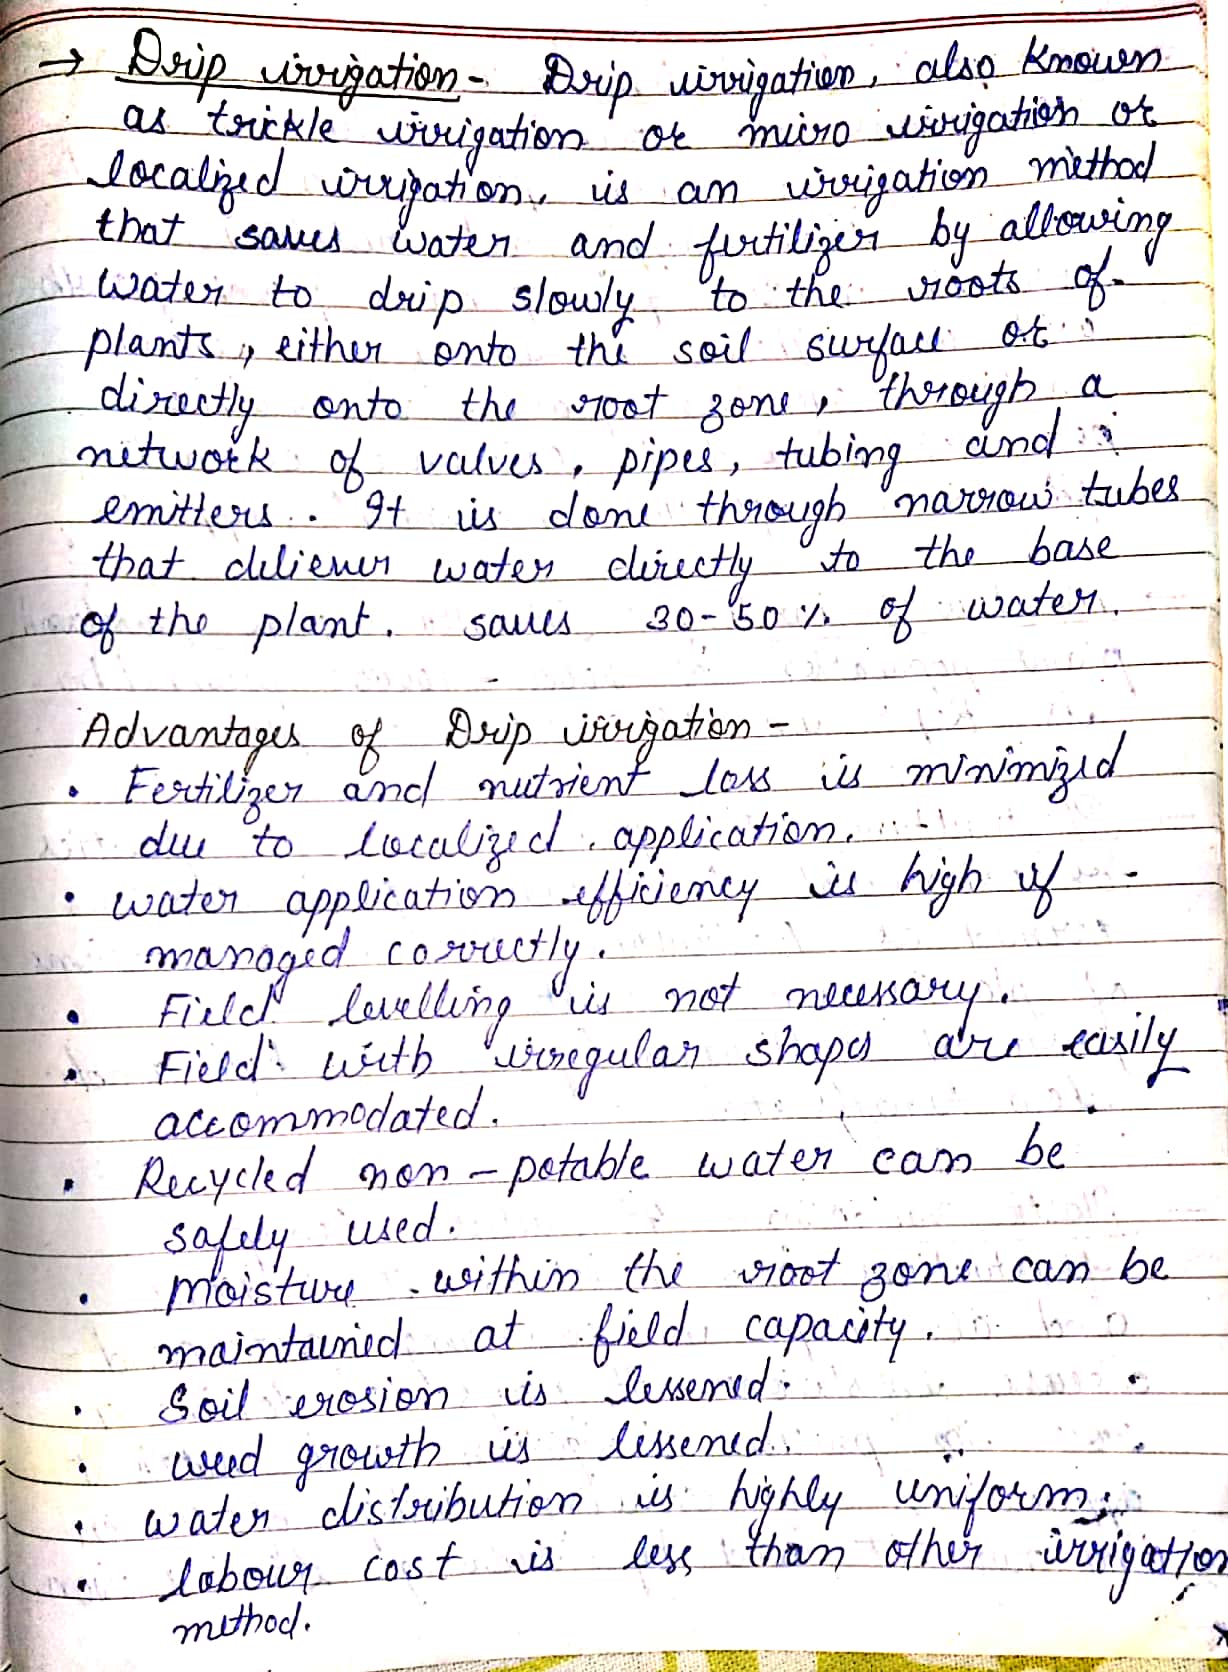 → Drip irrigation - Drip irrigation, also known
as trickle irrigation or micro irrigation or
localized irrigation, is an irrigation method
that saves water and fertilizer by allowing
water to drip slowly to the roots of
plants, either onto the soil surface or
directly onto the root zone, through a
network of valves, pipes, tubing and
emitters. It is done through narrow tubes
that deliever water directly to the base
of the plant. saves 30-50% of water.
Advantages of Drip irrigation -
• Fertilizer and nutrient loss is minimized
due to localized application.
• water application efficiency is high if
managed correctly.
• Field levelling is not necessary.
• Field with irregular shapes are easily
accommodated.
• Recycled non-potable water can be
safely used.
• Moisture within the root zone can be
maintained at field capacity.
• Soil erosion is lessened.
• weed growth is lessened.
• water distribution is highly uniform.
• labour cost is less than other irrigation
method.